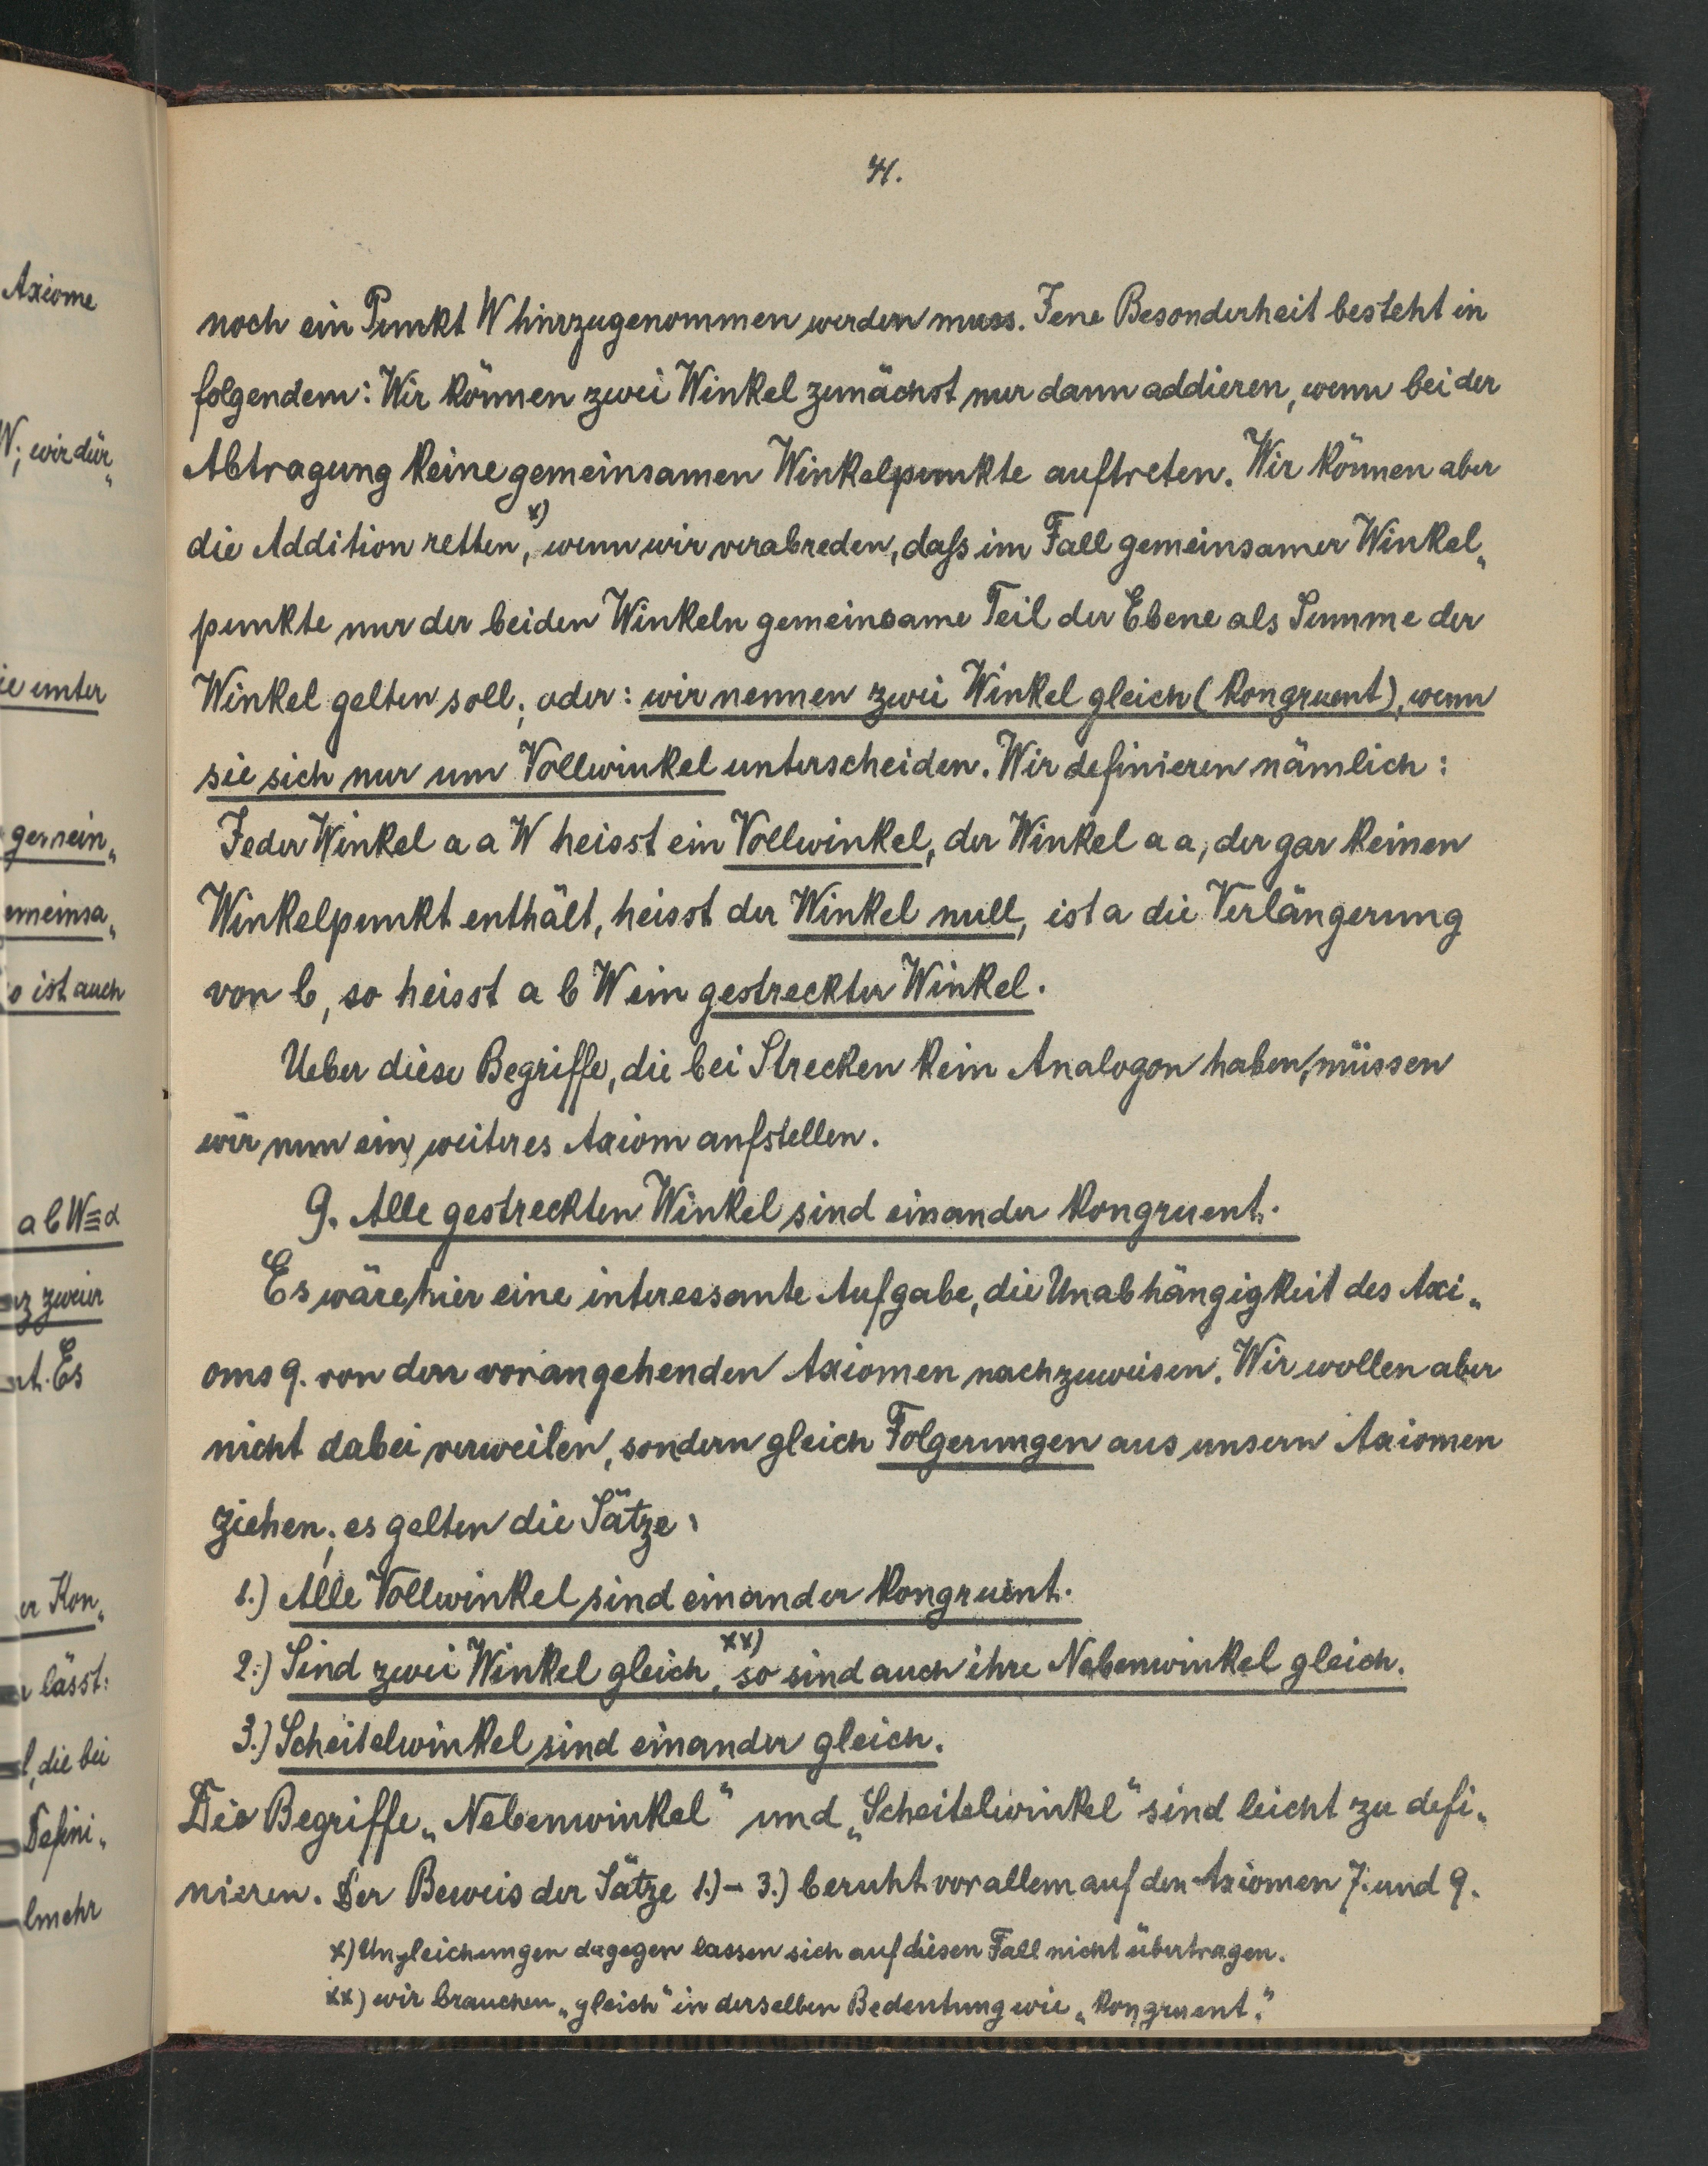 41.
noch ein Punkt W hinzugenommen werden muss. Jene Besonderheit besteht in
folgendem: Wir können zwei Winkel zunächst nur dann addieren, wenn bei der
Abtragung keine gemeinsamen Winkelpunkte auftreten. Wir können aber
die Addition retten,x) wenn wir verabreden, daſs im Fall gemeinsamer Winkel„
punkte nur der beiden Winkeln gemeinsame Teil der Ebene als Summe der
Winkel gelten soll; oder: wir nennen zwei Winkel gleich (kongruent), wenn
sie sich nur um Vollwinkel unterscheiden. Wir definieren nämlich:
Jeder Winkel a a W heisst ein Vollwinkel, der Winkel a a, der gar keinen
Winkelpunkt enthält, heisst der Winkel null, ist a die Verlängerung
von b, so heisst a b W ein gestreckter Winkel.
Ueber diese Begriffe, die bei Strecken kein Analogon haben, müssen
wir nun ein weiteres Axiom aufstellen.
9. Alle gestreckten Winkel sind einander kongruent.
Es wäre hier eine interessante Aufgabe, die Unabhängigkeit des Axi„
oms 9. von den vorangehenden Axiomen nachzuweisen. Wir wollen aber
nicht dabei verweilen, sondern gleich Folgerungen aus unsern Axiomen
ziehen; es gelten die Sätze:
1.) Alle Vollwinkel sind einander kongruent.
2.) Sind zwei Winkel gleich,xx) so sind auch ihre Nebenwinkel gleich.
3.) Scheitelwinkel sind einander gleich.
Die Begriffe „Nebenwinkel" und „Scheitelwinkel" sind leicht zu defi„
nieren. Der Beweis der Sätze 1.) – 3.) beruht vor allem auf den Axiomen 7. und 9.
x) Ungleichungen dagegen lassen sich auf diesen Fall nicht übertragen.
xx) wir brauchen „gleich" in derselben Bedeutung wie „kongruent".
Axiome
W; wir dür„
unter
gemein„
emeinsa„
o ist auch
a b W ≡ α
zweier
Es
er Kon„
lässt:
, die bei
Defini„
lmehr